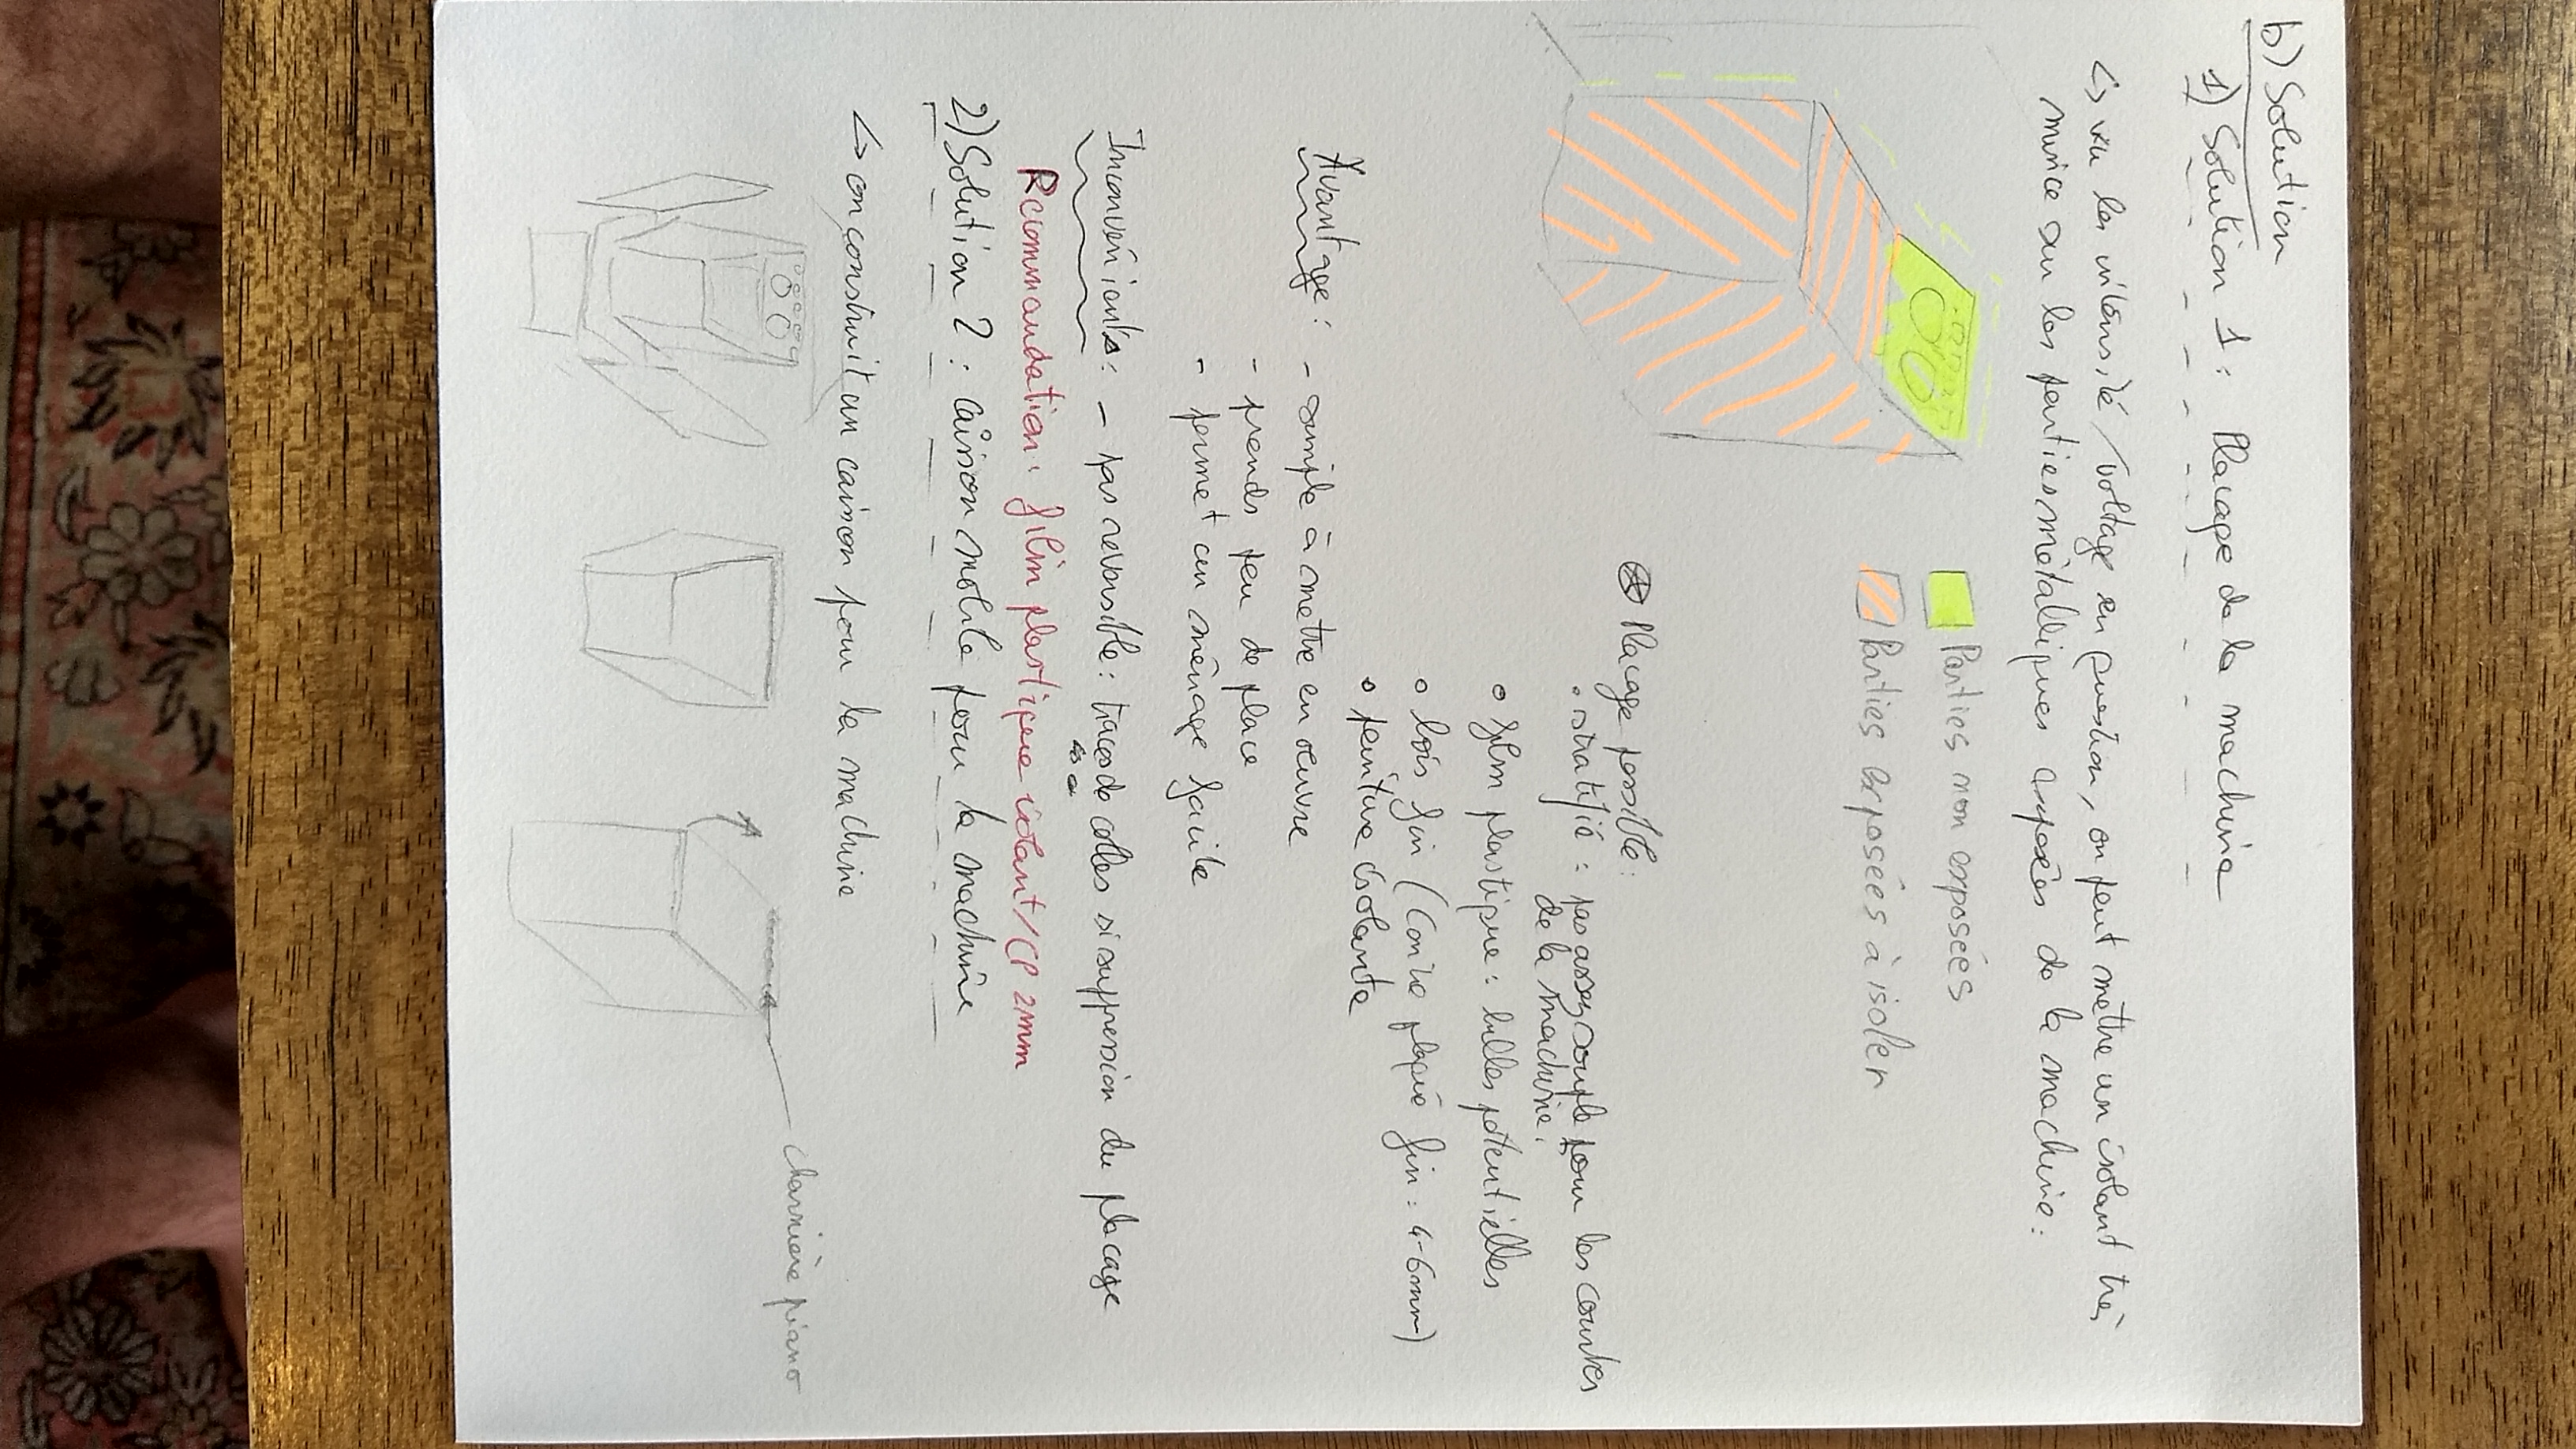 b) Solution
1) Solution 1 : Placage de la machine
↳ vu les intensité / voltage en question, on peut mettre un isolant très
mince sur les parties métalliques exposées de la machine :
Parties non exposées
Parties exposées à isoler
⊛ Placage possible :
• stratifié : pas assez souple pour les courbes
de la machine.
o film plastique : bulles potentielles
o bois fin (contre plaqué fin : 4-6mm)
o peinture isolante
Avantage : - simple à mettre en oeuvre
- prends peu de place
- permet un ménage facile
Inconvénients : - pas réversible : traces de colles si suppression du placage
Recommandation : film plastique isolant / CP 2mm
2) Solution 2 : caisson mobile pour la machine
↳ on construit un caisson pour la machine
charnière piano